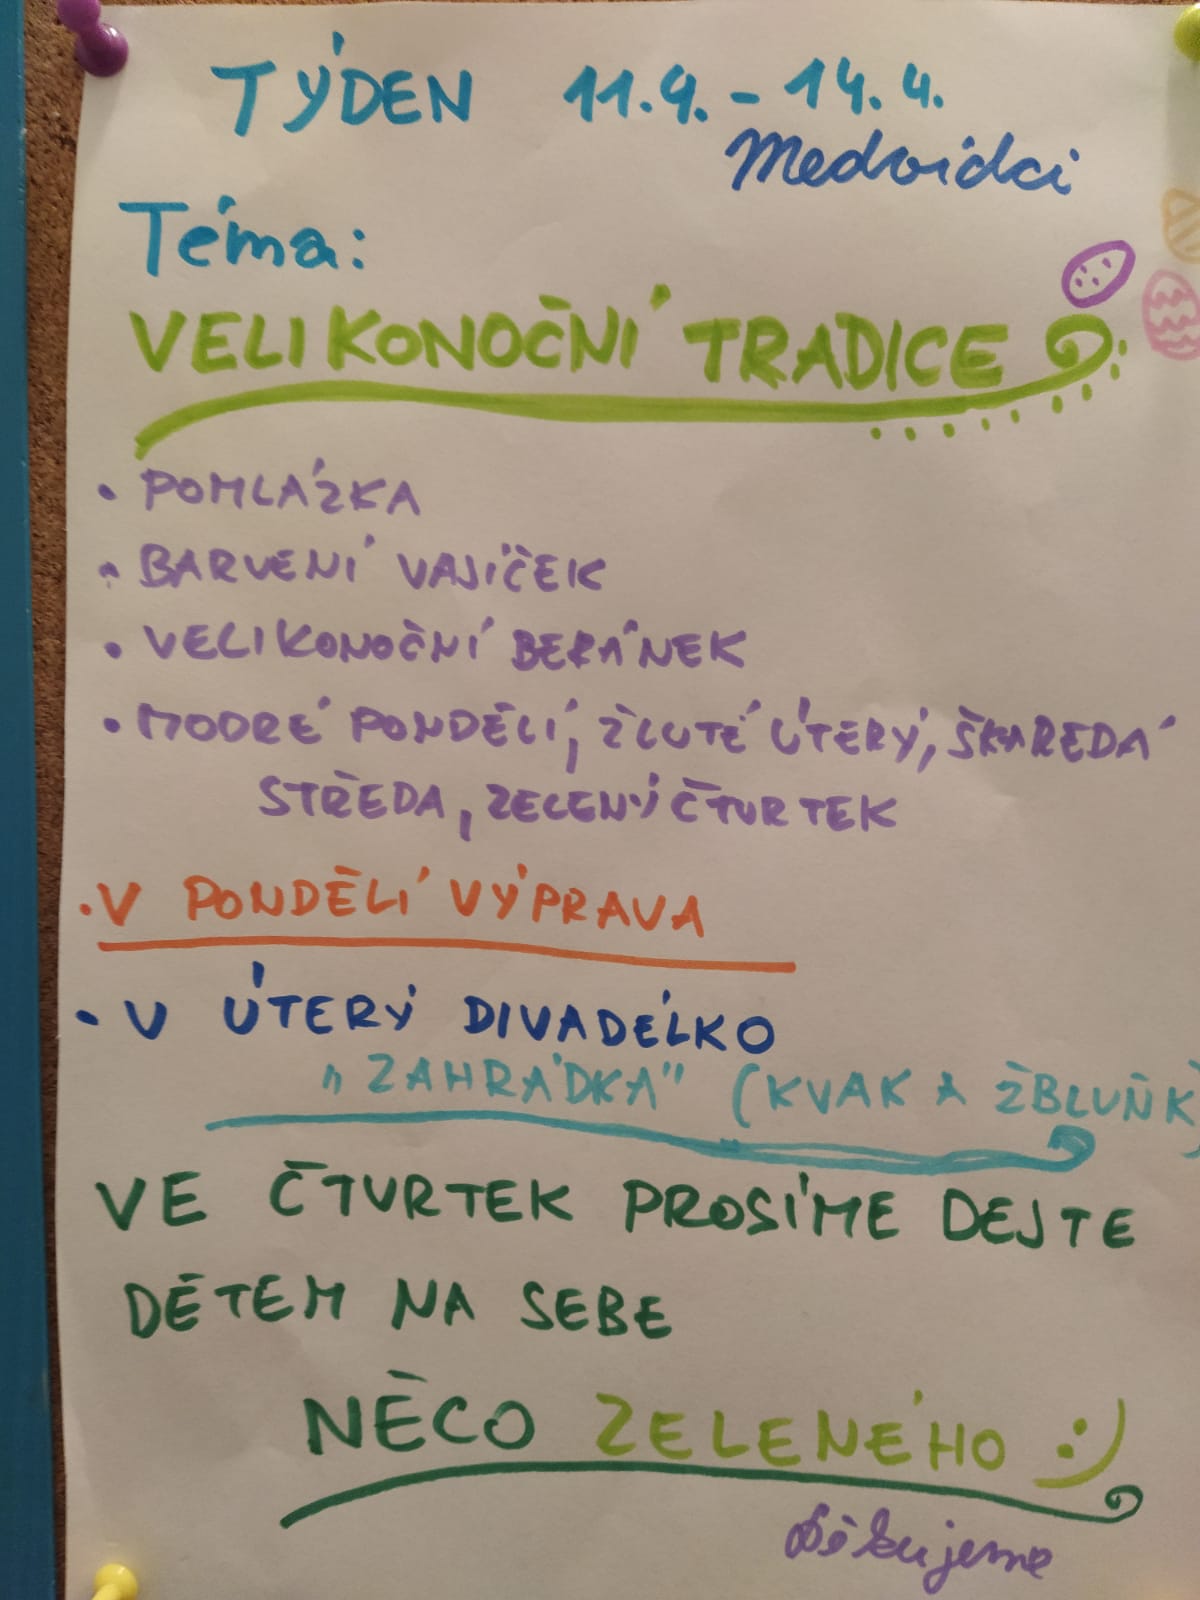 TÝDEN 11.4. - 14.4.
Medvídci
Téma:
VELIKONOČNÍ TRADICE
• POMLÁZKA
• BARVENÍ VAJÍČEK
• VELIKONOČNÍ BERÁNEK
• MODRÉ PONDĚLÍ, ŽLUTÉ ÚTERÝ, ŠKAREDÁ
STŘEDA, ZELENÝ ČTVRTEK
• V PONDĚLÍ VÝPRAVA
• V ÚTERÝ DIVADÉLKO
„ZAHRÁDKA" (KVAK A ŽBLUŇK)
VE ČTVRTEK PROSÍME DEJTE
DĚTEM NA SEBE
NĚCO ZELENÉHO :)
Děkujeme